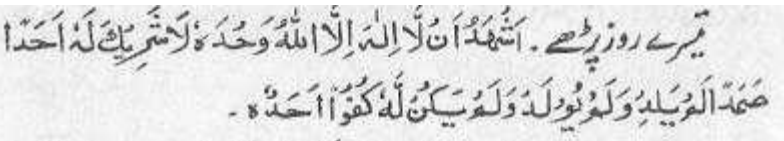 تیسرے روز پڑھے۔ اَشْهَدُ اَنْ لَّا اِلٰہَ اِلَّا اللّٰهُ وَحْدَہٗ لَا شَرِیْکَ لَہٗ اَحَدًا
صَمَدًا لَمْ یَلِدْ وَلَمْ یُوْلَدْ وَلَمْ یَکُنْ لَّہٗ کُفُوًا اَحَدٌ ہ ۔